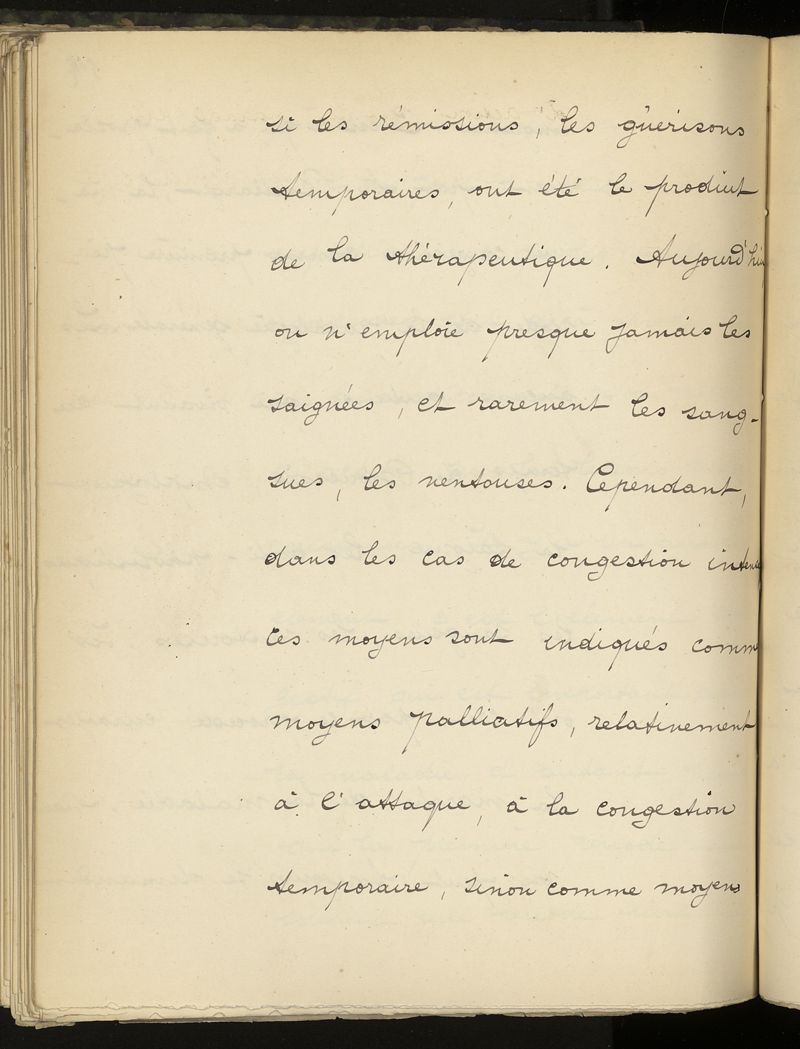 si les rémissions, les guérisons
temporaires, ont été le produit
de la thérapeutique. Aujourd'hui
on n'emploie presque jamais les
saignées, et rarement les sang-
sues, les ventouses. Cependant,
dans les cas de congestion intense
ces moyens sont indiqués comme
moyens palliatifs, relativement
à l'attaque, à la congestion
temporaire, sinon comme moyens